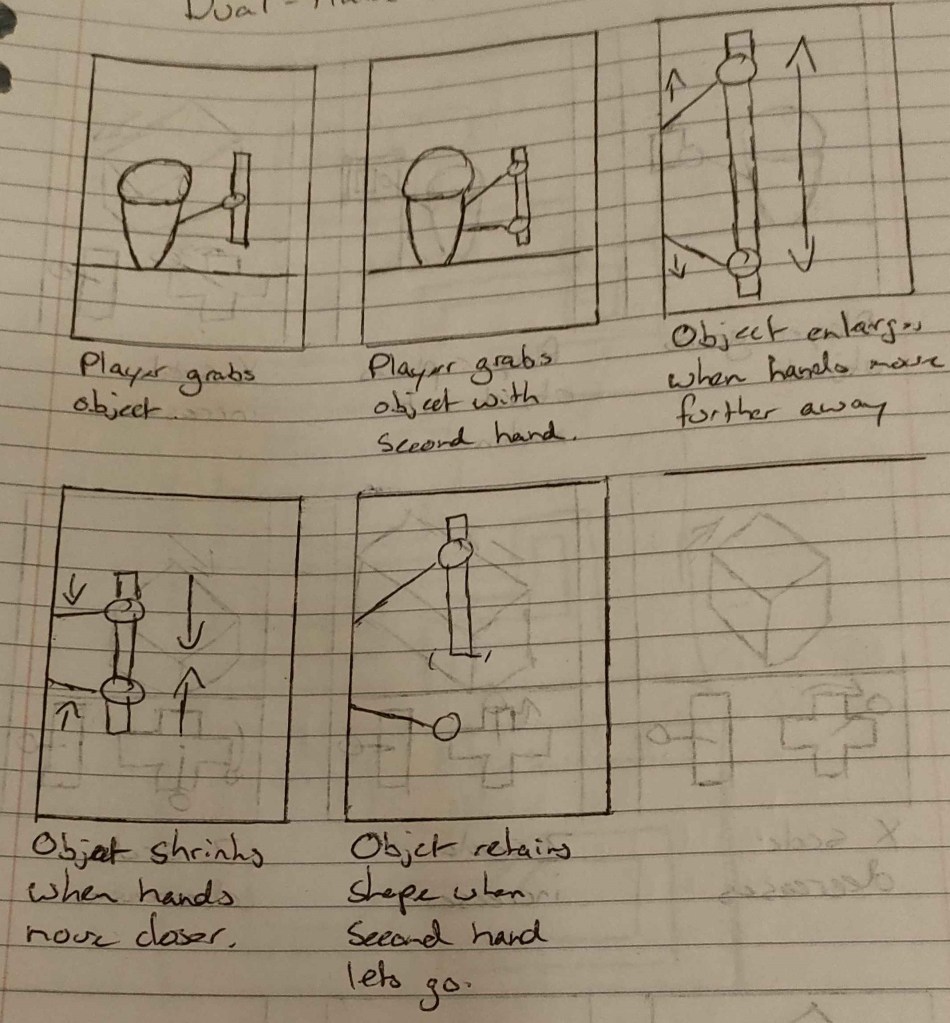 Dual-
Player grabs
object.
Player grabs
object with
second hand.
Object enlarges
when hands move
further away
Object shrinks
when hands
move closer.
Object retains
shape when
second hand
lets go.